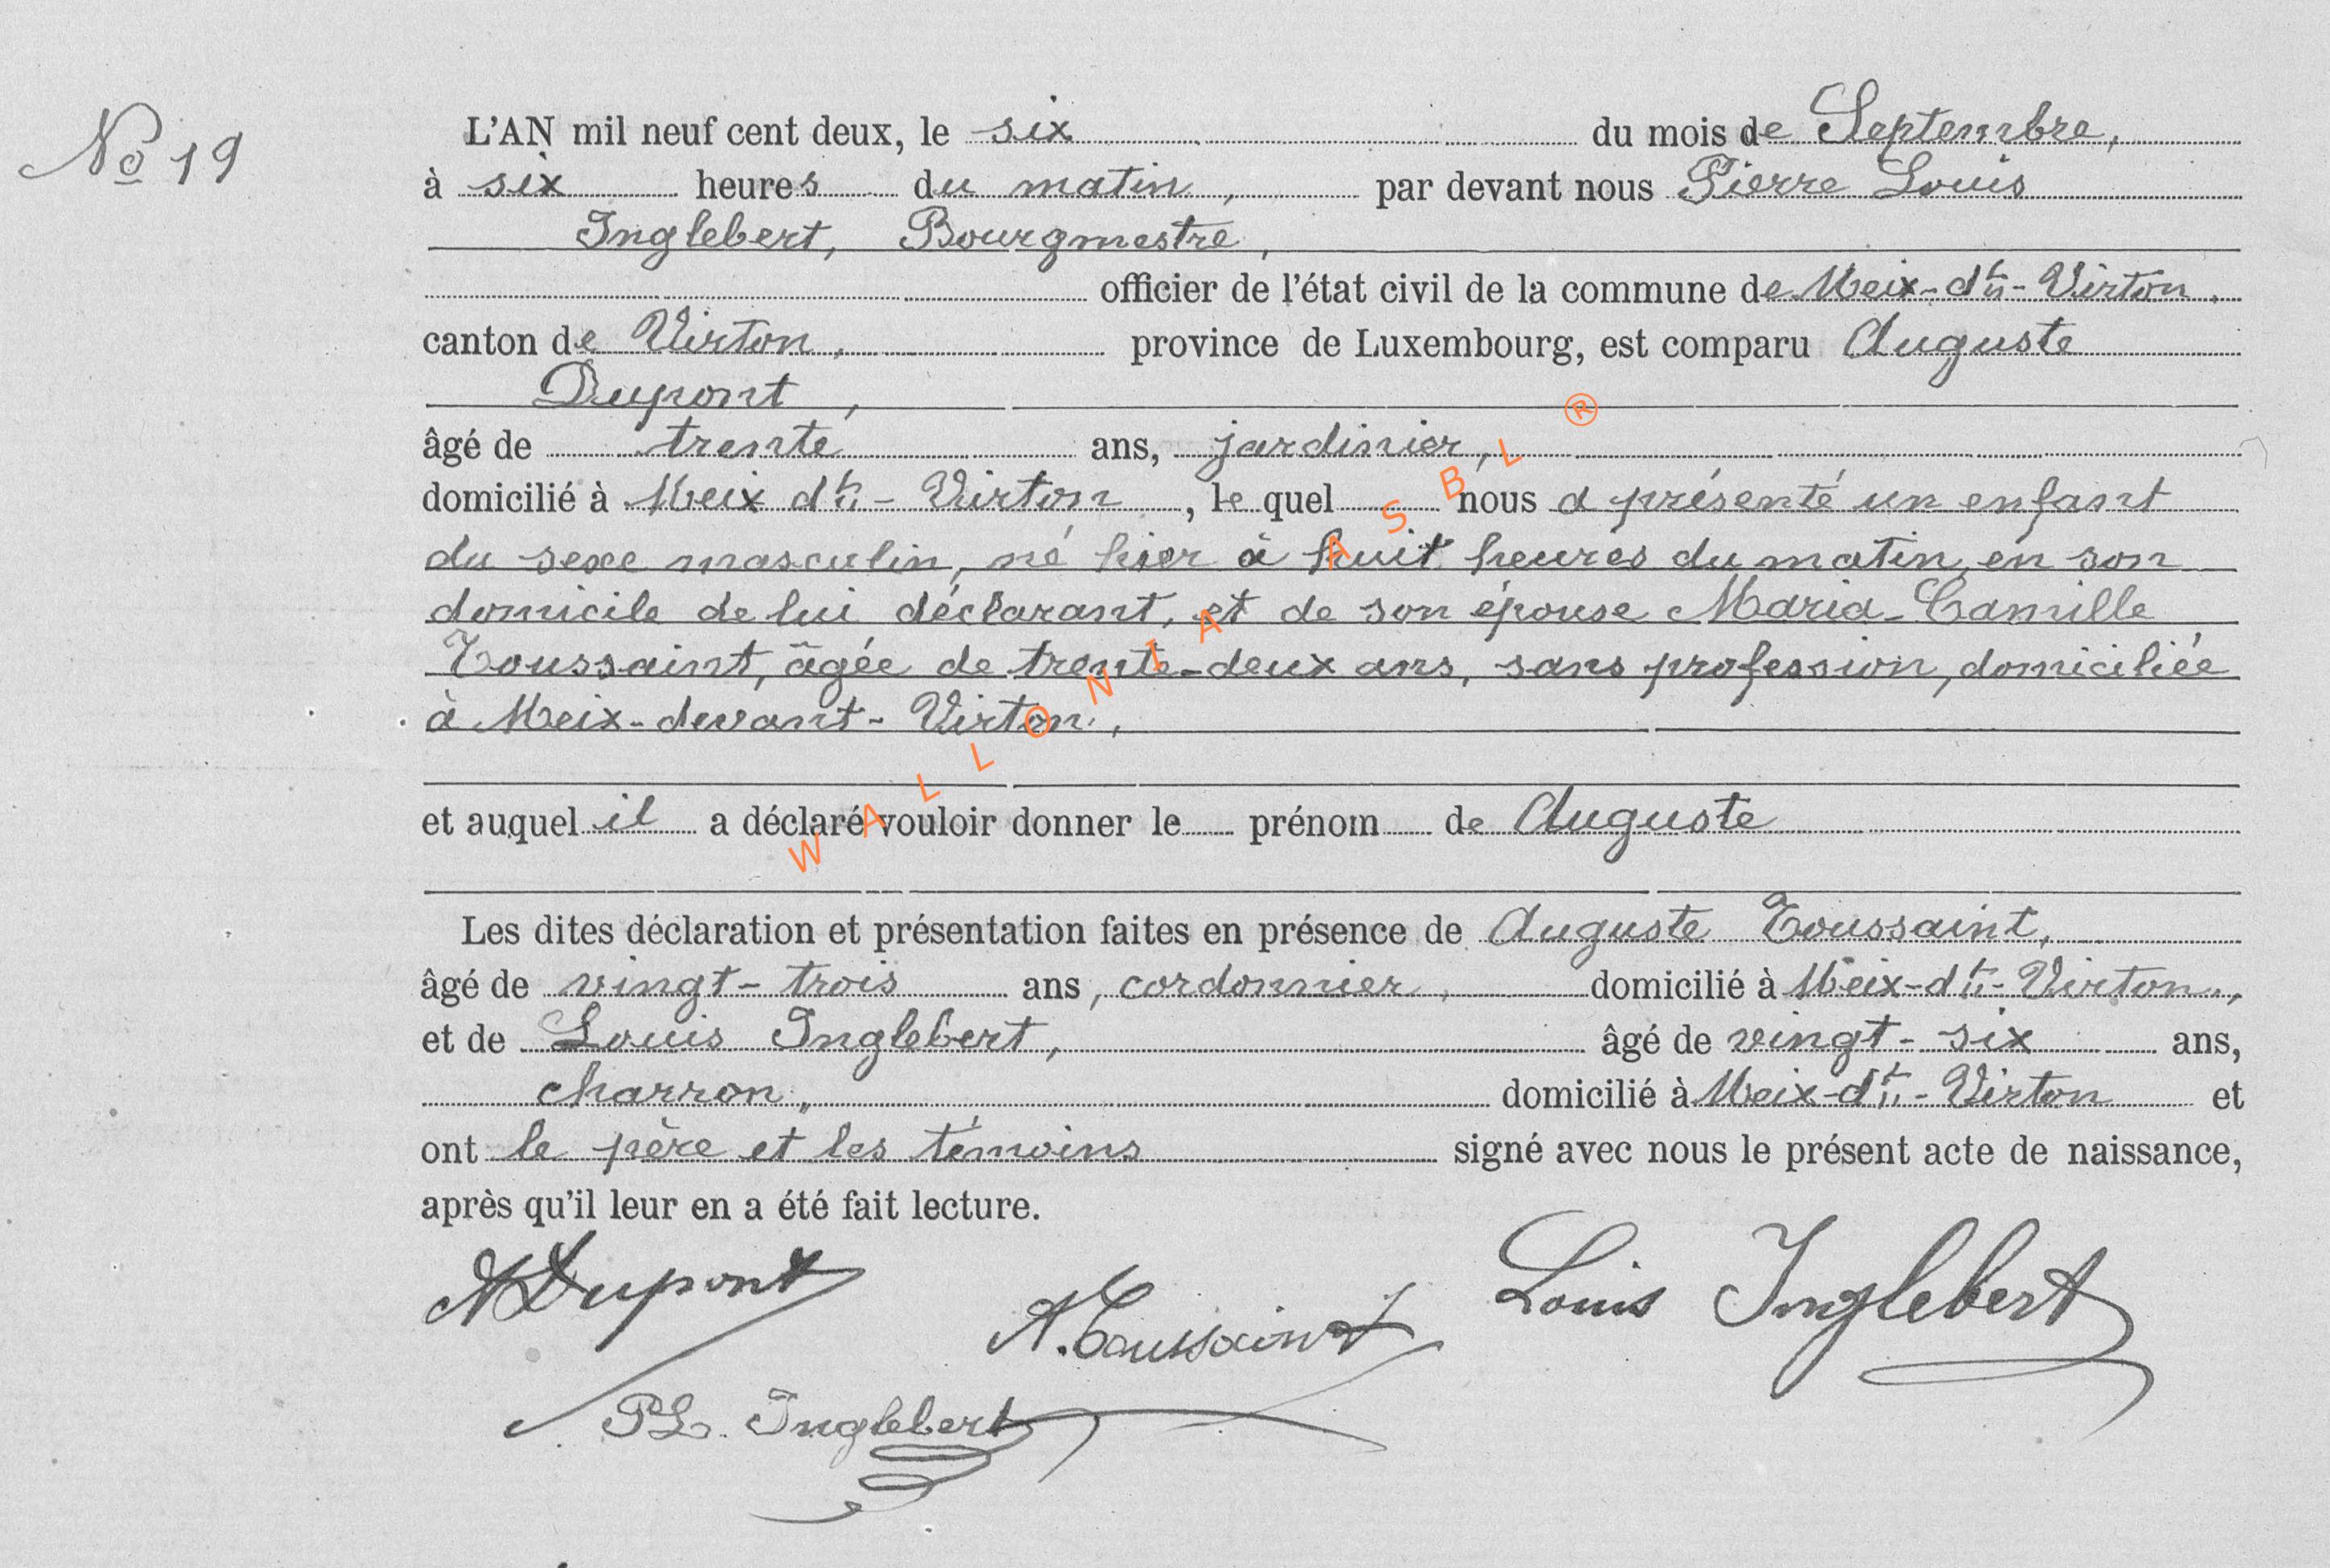 No 19
L'AN mil neuf cent deux, le six du mois de Septembre,
à six heures du matin, par devant nous Pierre Louis
Inglebert, Bourgmestre,
officier de l'état civil de la commune de Meix-dt-Virton.
canton de Virton, province de Luxembourg, est comparu Auguste
Dupont,
âgé de trente ans, jardinier,
domicilié à Meix dt-Virton, le quel nous a présenté un enfant
du sexe masculin, né hier à huit heures du matin, en son
domicile de lui déclarant, et de son épouse Maria-Camille
Toussaint, âgée de trente-deux ans, sans profession, domiciliée
à Meix-devant-Virton,
et auquel il a déclaré vouloir donner le prénom de Auguste
Les dites déclaration et présentation faites en présence de Auguste Toussaint,
âgé de vingt-trois ans, cordonnier, domicilié à Meix-dt-Virton,
et de Louis Inglebert, âgé de vingt-six ans,
charron, domicilié à Meix-dt-Virton et
ont le père et les témoins signé avec nous le présent acte de naissance,
après qu'il leur en a été fait lecture.
ADupont
A. Toussaint
Louis Inglebert
PL. Inglebert
WALLONIA ASBL ®